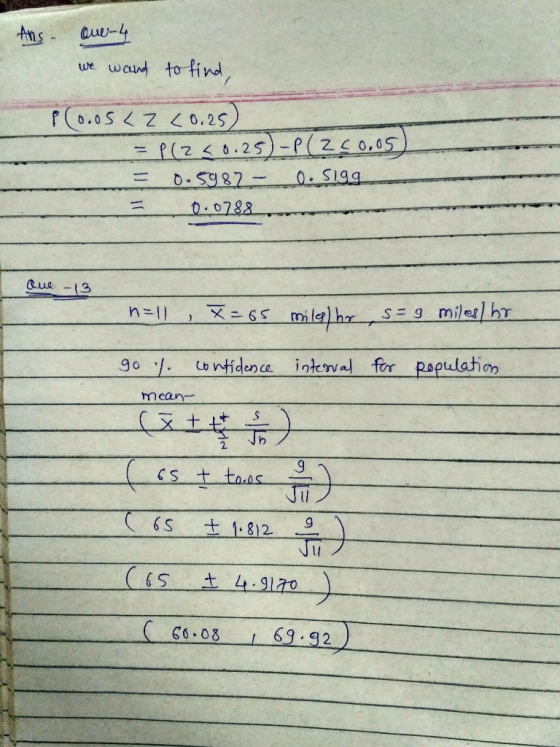 Ans - Que-4
we want to find,
P(0.05 < Z < 0.25)
= P(Z ≤ 0.25) - P(Z ≤ 0.05)
= 0.5987 - 0.5199
= 0.0788
Que -13
n=11 , x̄ = 65 miles/hr , s = 9 miles/hr
90 % confidence interval for population
mean-
( x̄ ± t α/2 s/√n )
( 65 ± t0.05 9/√11 )
( 65 ± 1.812 9/√11 )
( 65 ± 4.9170 )
( 60.08 , 69.92 )